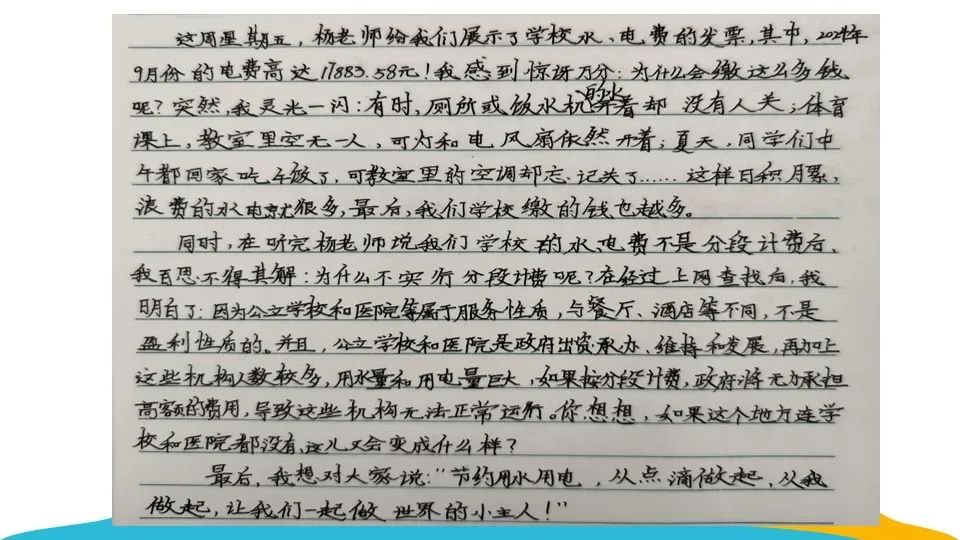 这周星期五，杨老师给我们展示了学校水、电费的发票，其中，2024年
9月份的电费高达17883.58元！我感到惊讶万分：为什么会缴这么多钱
呢？突然，我灵光一闪：有时，厕所或饭水机的水开着却没有人关；体育
课上，教室里空无一人，可灯和电风扇依然开着；夏天，同学们中
午都回家吃午饭了，可教室里的空调却忘记关了……这样日积月累，
浪费的水电就很多，最后，我们学校缴的钱也越多。
同时，在听完杨老师说我们学校的水、电费不是分段计费后，
我百思不得其解：为什么不实行分段计费呢？在经过上网查找后，我
明白了：因为公立学校和医院等属于服务性质，与餐厅、酒店等不同，不是
盈利性质的。并且，公立学校和医院是政府出资承办、维持和发展，再加上
这些机构人数较多，用水量和用电量巨大，如果按分段计费，政府将无力承担
高额的费用，导致这些机构无法正常运行。你想想，如果这个地方连学
校和医院都没有，这儿又会变成什么样？
最后，我想对大家说：“节约用水用电，从点滴做起，从我
做起，让我们一起做世界的小主人！”